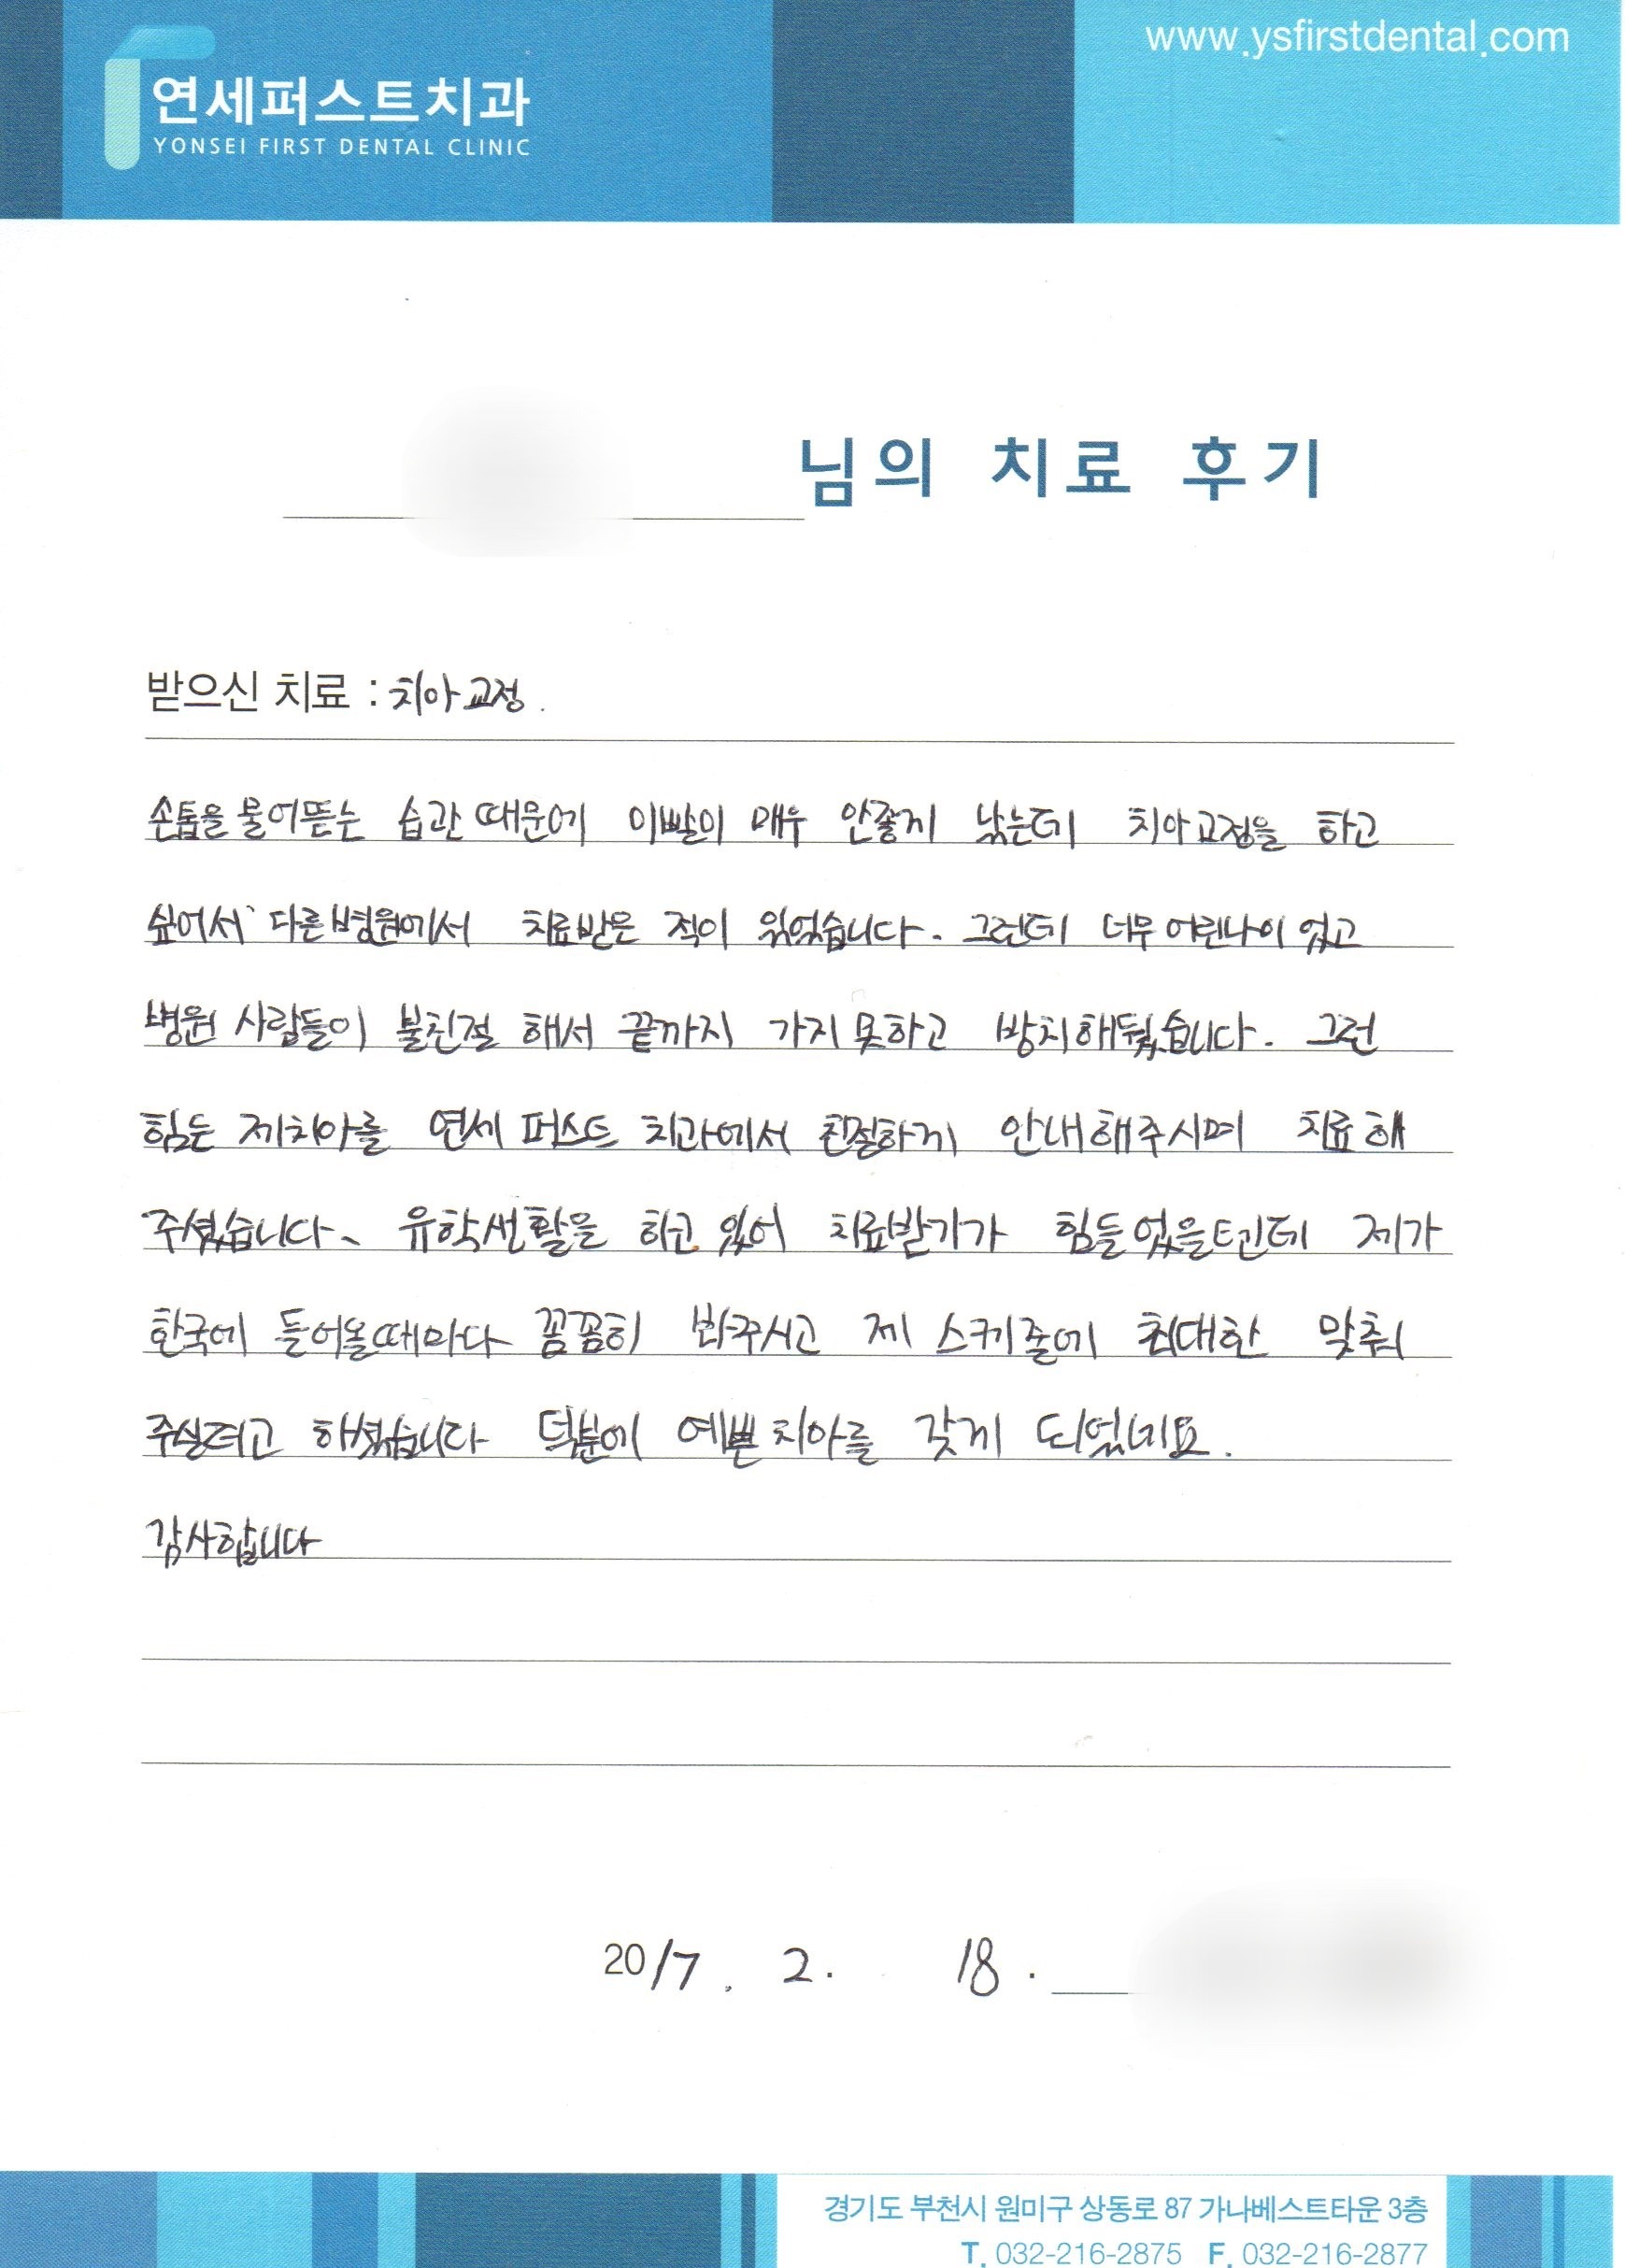 www.ysfirstdental.com
연세퍼스트치과
YONSEI FIRST DENTAL CLINIC
님의 치료 후기
받으신 치료 : 치아교정.
손톱을 물어뜯는 습관 때문에 이빨이 매우 안좋게 났는데 치아교정을 하고
싶어서 다른병원에서 치료받은 적이 있었습니다. 그런데 너무 어린나이 였고
병원 사람들이 불친절 해서 끝까지 가지 못하고 방치해뒀습니다. 그런
힘든 제치아를 연세 퍼스트 치과에서 친절하게 안내해주시며 치료해
주셨습니다. 유학생활을 하고 있어 치료받기가 힘들었을텐데 제가
한국에 들어올때마다 꼼꼼히 봐주시고 제 스케줄에 최대한 맞춰
주실려고 하셨습니다 덕분에 예쁜치아를 갖게 되었네요.
감사합니다
2017. 2. 18.
경기도 부천시 원미구 상동로 87 가나베스트타운 3층
T. 032-216-2875 F. 032-216-2877